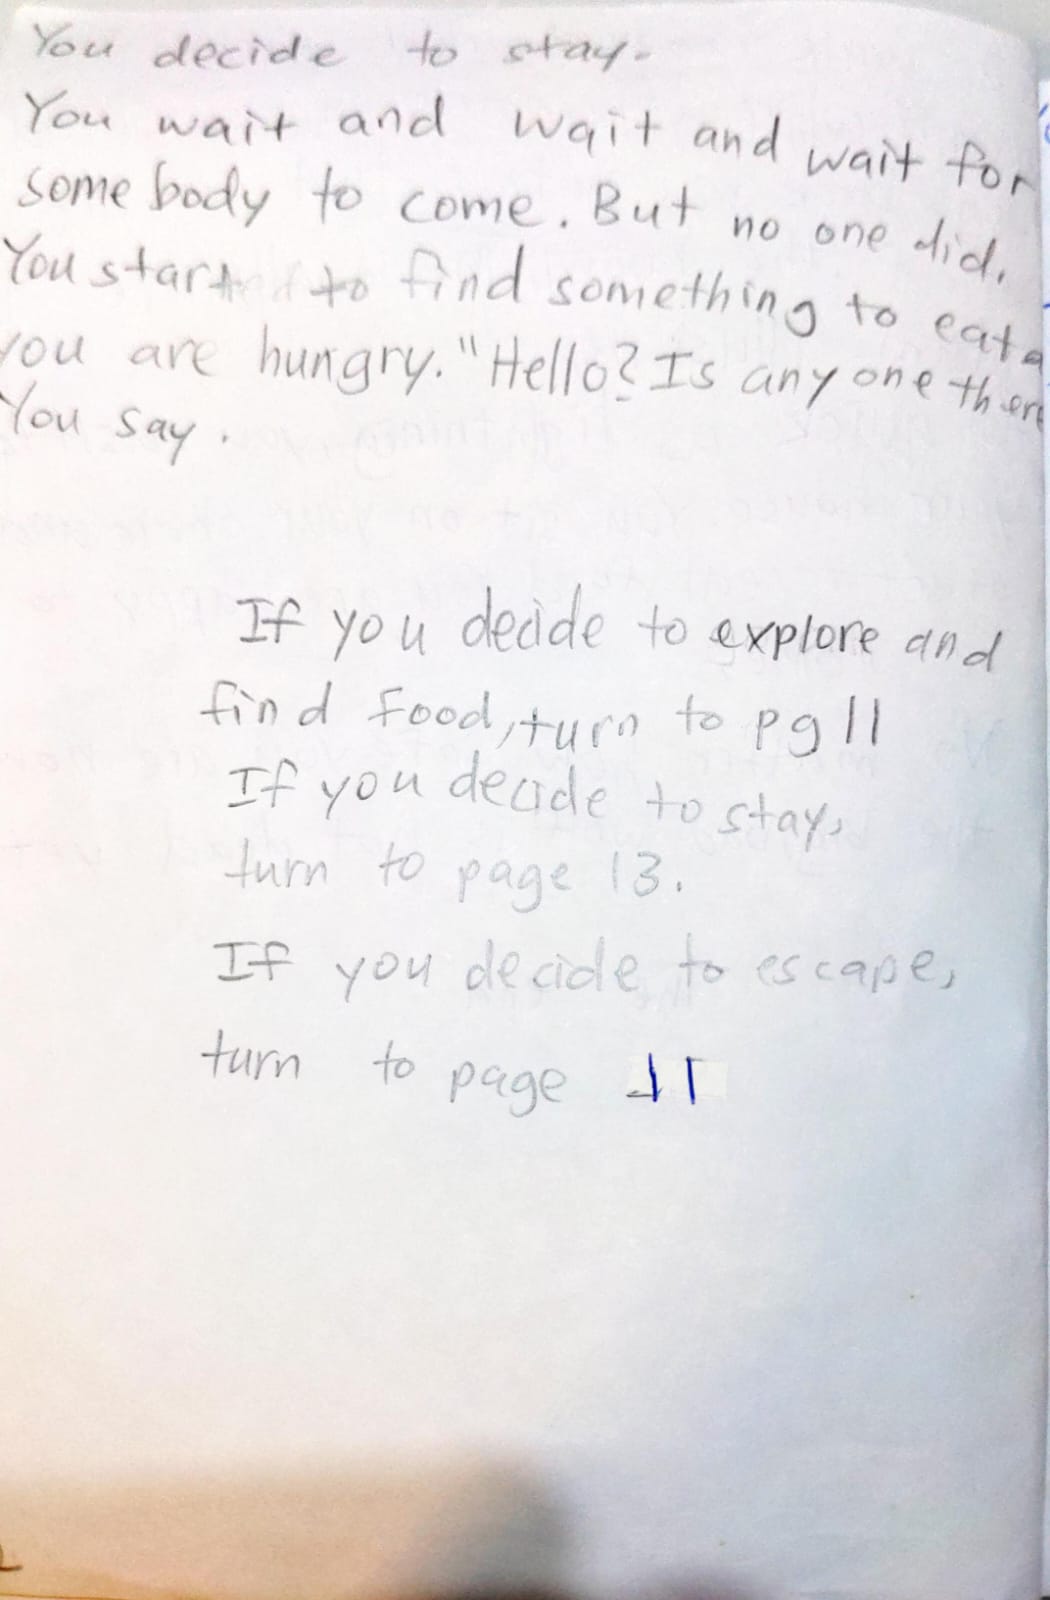 You decide to stay.
You wait and wait and wait for
somebody to come. But no one did.
You start to find something to eat
you are hungry. "Hello? Is anyone there
You say.
If you decide to explore and
find food, turn to pg 11
If you decide to stay,
turn to page 13.
If you decide to escape,
turn to page